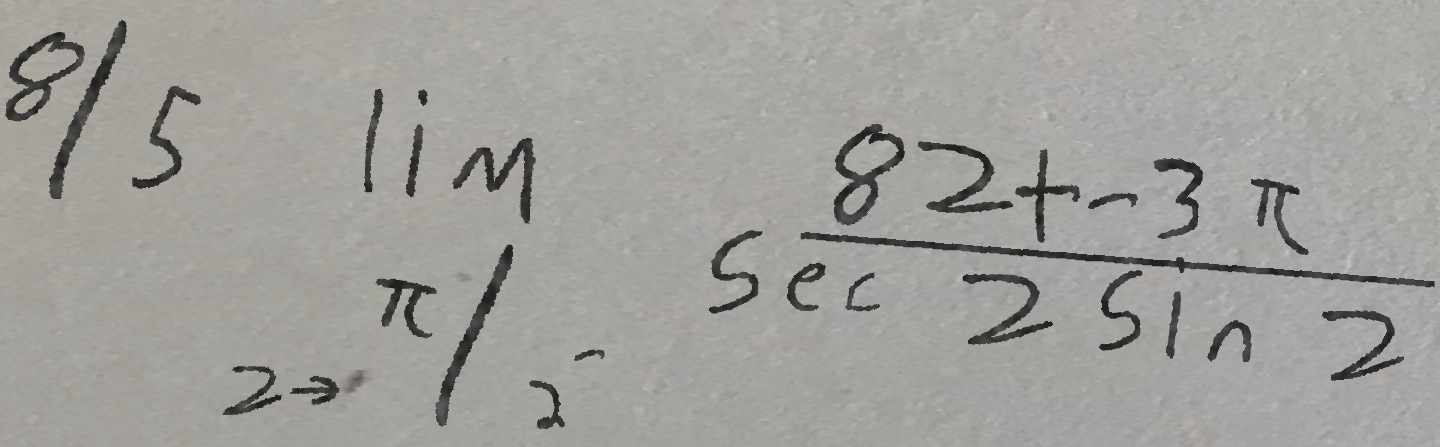 8/5 lim z→π/2⁻ (8z+-3π)/(sec z sin z)